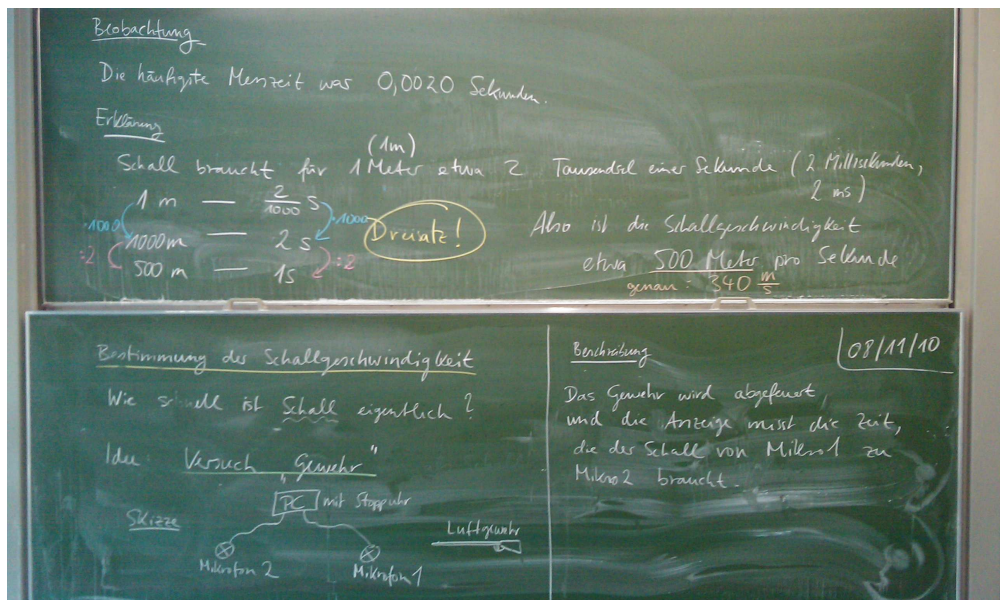 Beobachtung
Die häufigste Messzeit war 0,0020 Sekunden.
Erklärung
(1m)
Schall braucht für 1 Meter etwa 2 Tausendstel einer Sekunde (2 Millisekunden,
2 ms)
1 m — 2/1000 s
·1000 ·1000
1000m — 2 s
:2 :2
500 m — 1s
Dreisatz!
Also ist die Schallgeschwindigkeit
etwa 500 Meter pro Sekunde
genau: 340 m/s
Bestimmung der Schallgeschwindigkeit
Wie schnell ist Schall eigentlich?
Idee Versuch „Gewehr"
Skizze
PC mit Stoppuhr
Luftgewehr
Mikrofon 2 Mikrofon 1
Beschreibung
08/11/10
Das Gewehr wird abgefeuert,
und die Anzeige misst die Zeit,
die der Schall von Mikro1 zu
Mikro2 braucht.